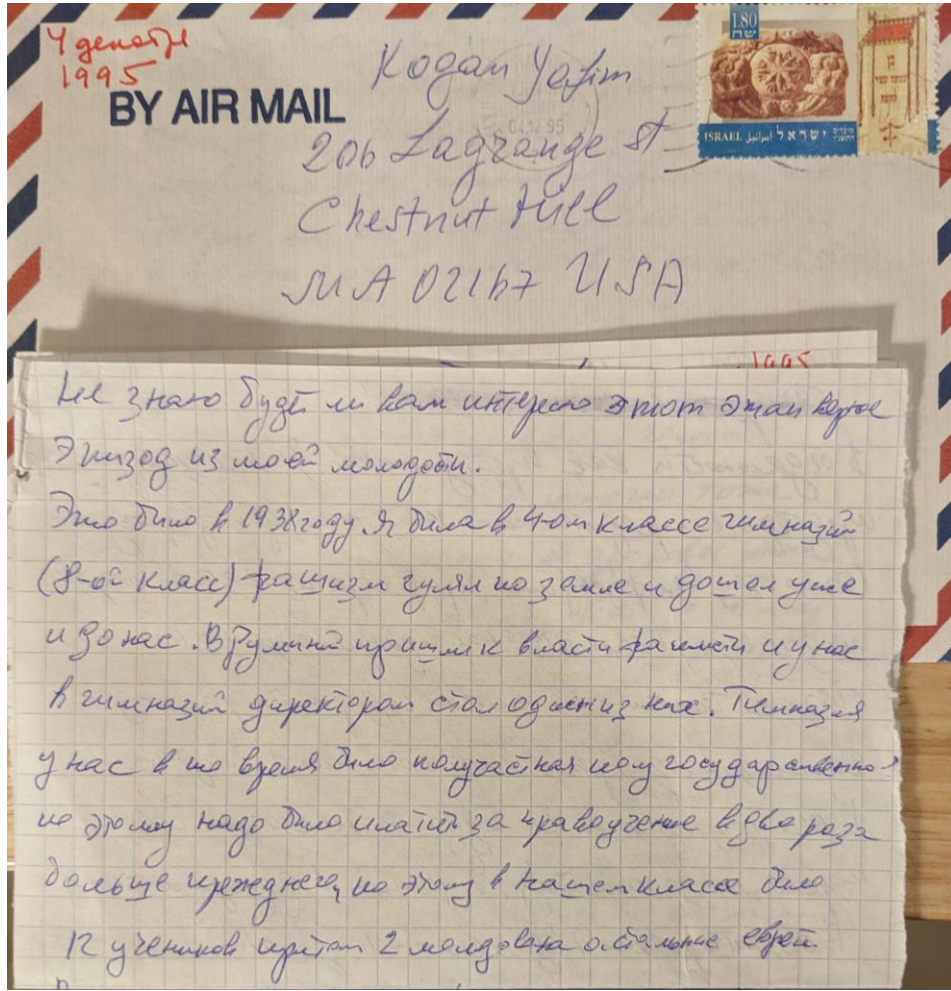 4 декабря
1995
BY AIR MAIL
Kogan Yefim
206 Lagrange st
Chestnut Hill
MA 02167 USA
1.80
ISRAEL اسرائيل ישראל
04.12.95
1995
Не знаю будет ли вам интересно этот этап вернее
Эпизод из моей молодости.
Это было в 1938 году. Я была в 4-ом классе гимназий
(8-ой класс) фашизм гулял по земле и дошел уже
и до нас. В Румыний пришли к власти фашисти и у нас
в гимназий директором стал один из них. Гимназия
у нас в то время было получастная полу государственно
по этому надо было платить за правоучение в два раза
больще прежднего, по этому в нашем классе было
12 учеников притом 2 молдована остальние еврей